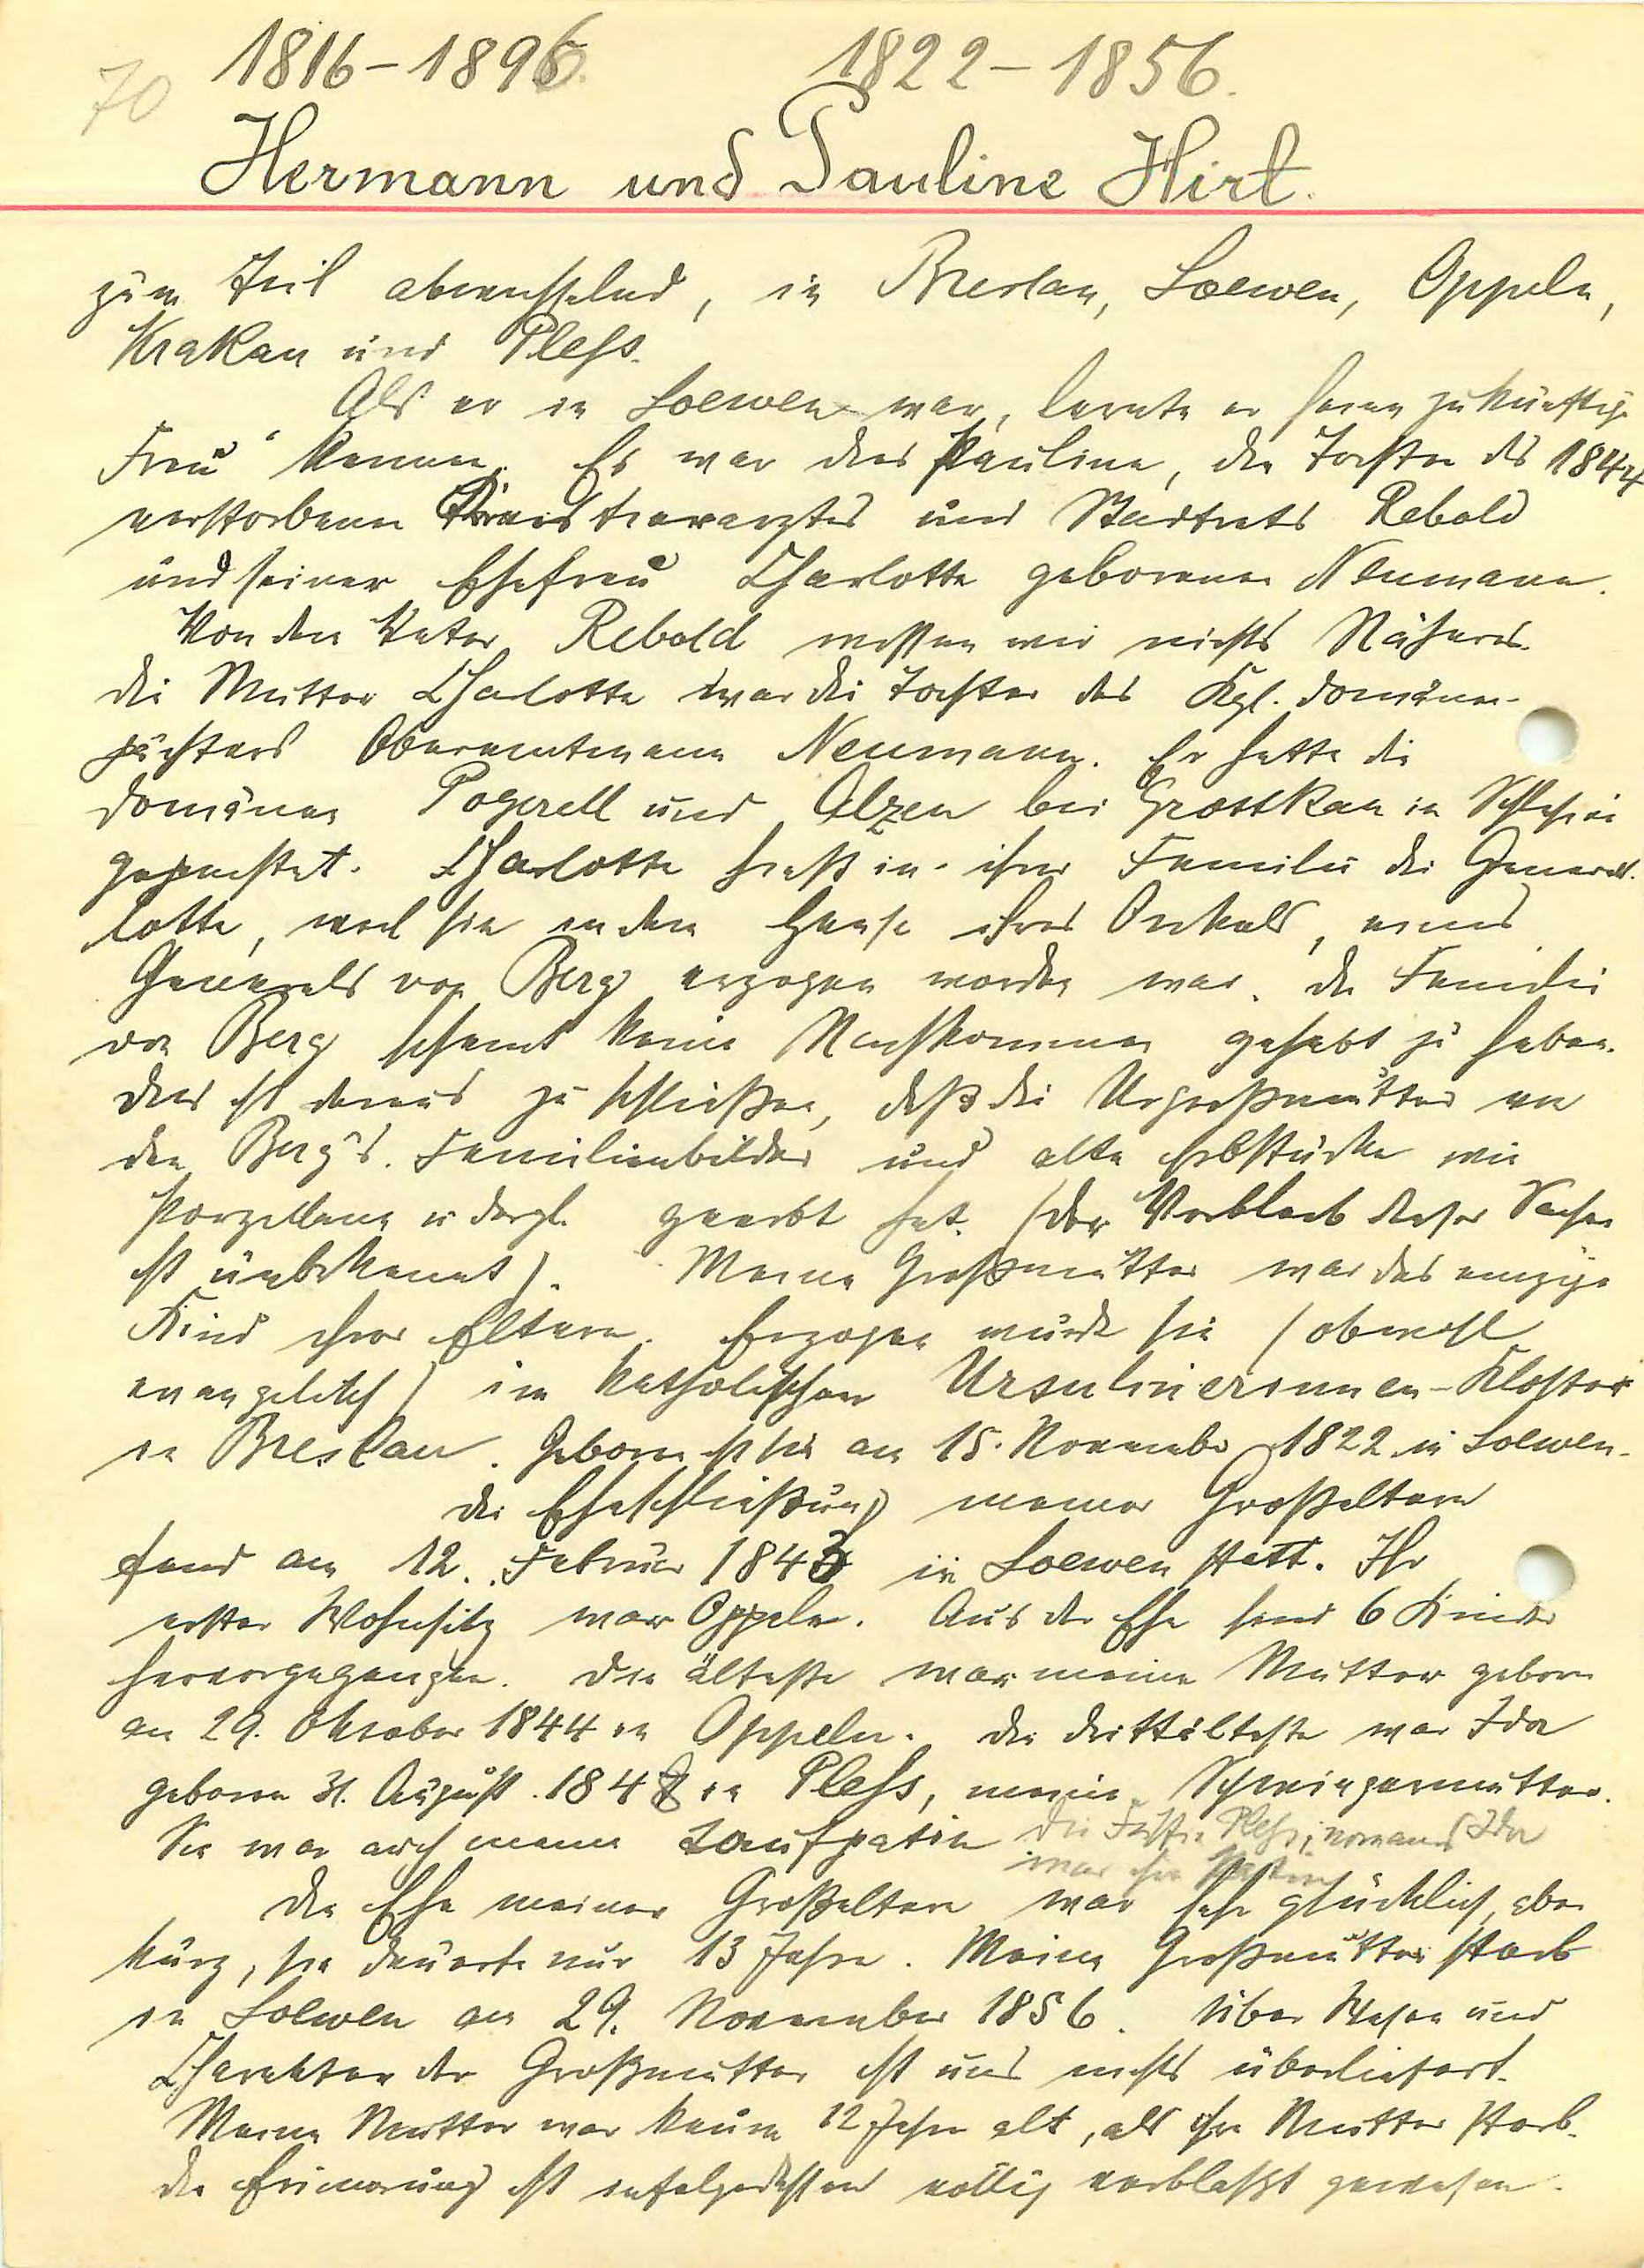 70
1816 – 1896. 1822 – 1856.
Hermann und Pauline Hirt.
zum Teil abwechselnd, in Breslau, Loewen, Oppeln,
Krakau und Pleß.
Als er in Loewen war, lernte er seine zukünftige
Frau kennen. Es war dies Pauline, die Tochter des 1844
verstorbenen Kreistierarztes und Stadtrats Rebold
und seiner Ehefrau Charlotte geborenen Neumann.
Von dem Vater Rebold wissen wir nichts Näheres.
die Mutter Charlotte war die Tochter des Kgl. Domänen-
pächters Oberamtmann Neumann. Er hatte die
Domänen Pogerell und Alzen bei Grottkau in Schlesien
gepachtet. Charlotte hieß in ihrer Familie die General-
lotte, weil sie in dem Hause ihres Onkels, eines
Generals von Berg erzogen worden war. die Familie
von Berg scheint keine Nachkommen gehabt zu haben.
dies ist daraus zu schließen, daß die Urgroßmutter von
den Berg's. Familienbilder und alte Erbstücke wie
Porzellane u dergl. geerbt hat. (der Verbleib dieser Sachen
ist unbekannt). Meine Großmutter war das einzige
Kind ihrer Eltern. Erzogen wurde sie (obwohl
evangelisch) im katholischen Ursulinerinnen-Kloster
in Breslau. Geboren ist sie am 15. November 1822 in Loewen.
die Eheschließung meiner Großeltern
fand am 12. Februar 1843 in Loewen statt. Ihr
erster Wohnsitz war Oppeln. Aus der Ehe sind 6 Kinder
hervorgegangen. Die älteste war meine Mutter geboren
am 29. Oktober 1844 in Oppeln. die drittälteste war Ida
geboren 31. August 1848 in Pleß, meine Schwiegermutter.
Sie war auch meine Taufpatin die Fürstin Pleß, namens Ida
war ihre Patin
die Ehe meiner Großeltern war sehr glücklich, aber
kurz, sie dauerte nur 13 Jahre. Meine Großmutter starb
in Loewen am 29. November 1856. Über Wesen und
Charakter der Großmutter ist uns nichts überliefert.
Meine Mutter war kaum 12 Jahre alt, als ihre Mutter starb.
die Erinnerung ist infolgedessen völlig verblaßt gewesen.